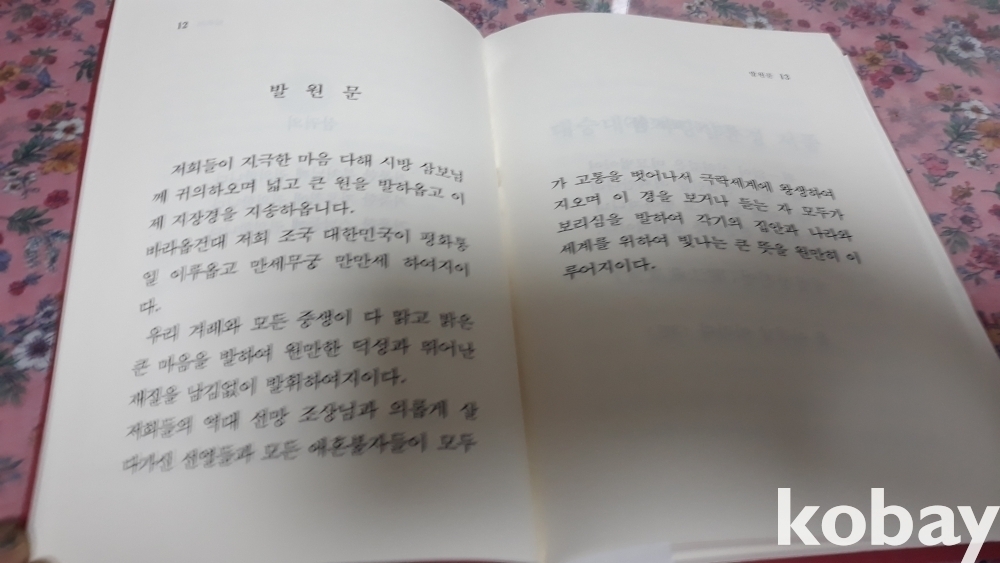 12
발 원 문
저희들이 지극한 마음 다해 시방 삼보님
께 귀의하오며 넓고 큰 원을 발하옵고 이
제 지장경을 지송하옵니다.
바라옵건대 저희 조국 대한민국이 평화통
일 이루옵고 만세무궁 만만세 하여지이
다.
우리 겨레와 모든 중생이 다 맑고 밝은
큰 마음을 발하여 원만한 덕성과 뛰어난
재질을 남김없이 발휘하여지이다.
저희들의 역대 선망 조상님과 의롭게 살
다가신 선열들과 모든 애혼불자들이 모두
발원문 13
가 고통을 벗어나서 극락세계에 왕생하여
지오며 이 경을 보거나 듣는 자 모두가
보리심을 발하여 각기의 집안과 나라와
세계를 위하여 빛나는 큰 뜻을 원만히 이
루어지이다.
kobay